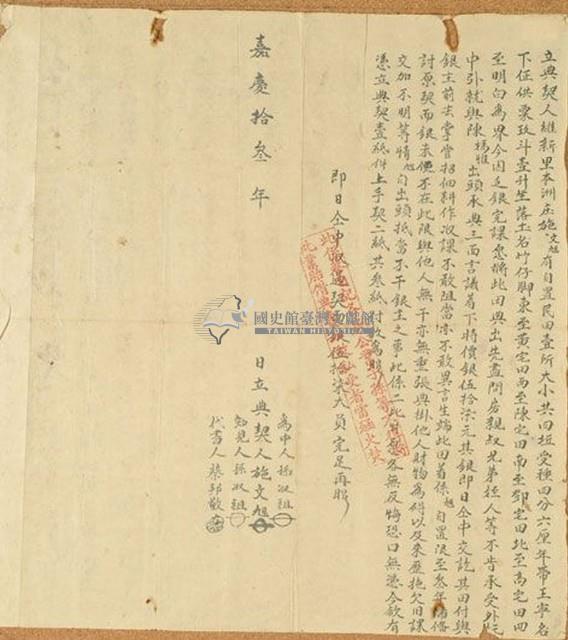 立典契人維新里本洲庄施文旭有自置民田壹所大小共四坵受種四分六厘年帶王寧名
下佃供粟玖斗壹升坐落土名竹仔腳東至黃宅田西至陳宅田南至鄧宅田北至高宅田四
至明白為界今因乏銀完課愿將此田典出先盡問房親叔兄弟姪人等不肯承受外託
中引就與陳 出頭承典三面言議着下時價銀伍拾柒元其銀即日仝中交訖其田付與
銀主前去掌管招佃耕作收課不敢阻當亦不敢異言生端此田着係旭自置限至叁年備
討原契而銀未便不在此限與他人無干亦無重張典掛他人財物為碍以及來歷拖欠旧課
交加不明等情旭自出頭抵當不干銀主之事此係二比甘愿各無反悔恐口無憑今欲有
憑立典契壹紙併上手契二紙共叁紙付收為照
即日仝中收過契面銀伍拾柒大員完足再照
嘉慶拾叁年 日立典契人施文旭
為中人孫叔祖
知見人孫叔祖
代書人蔡邦敬
國史館臺灣文獻館
TAIWAN HISTORICA